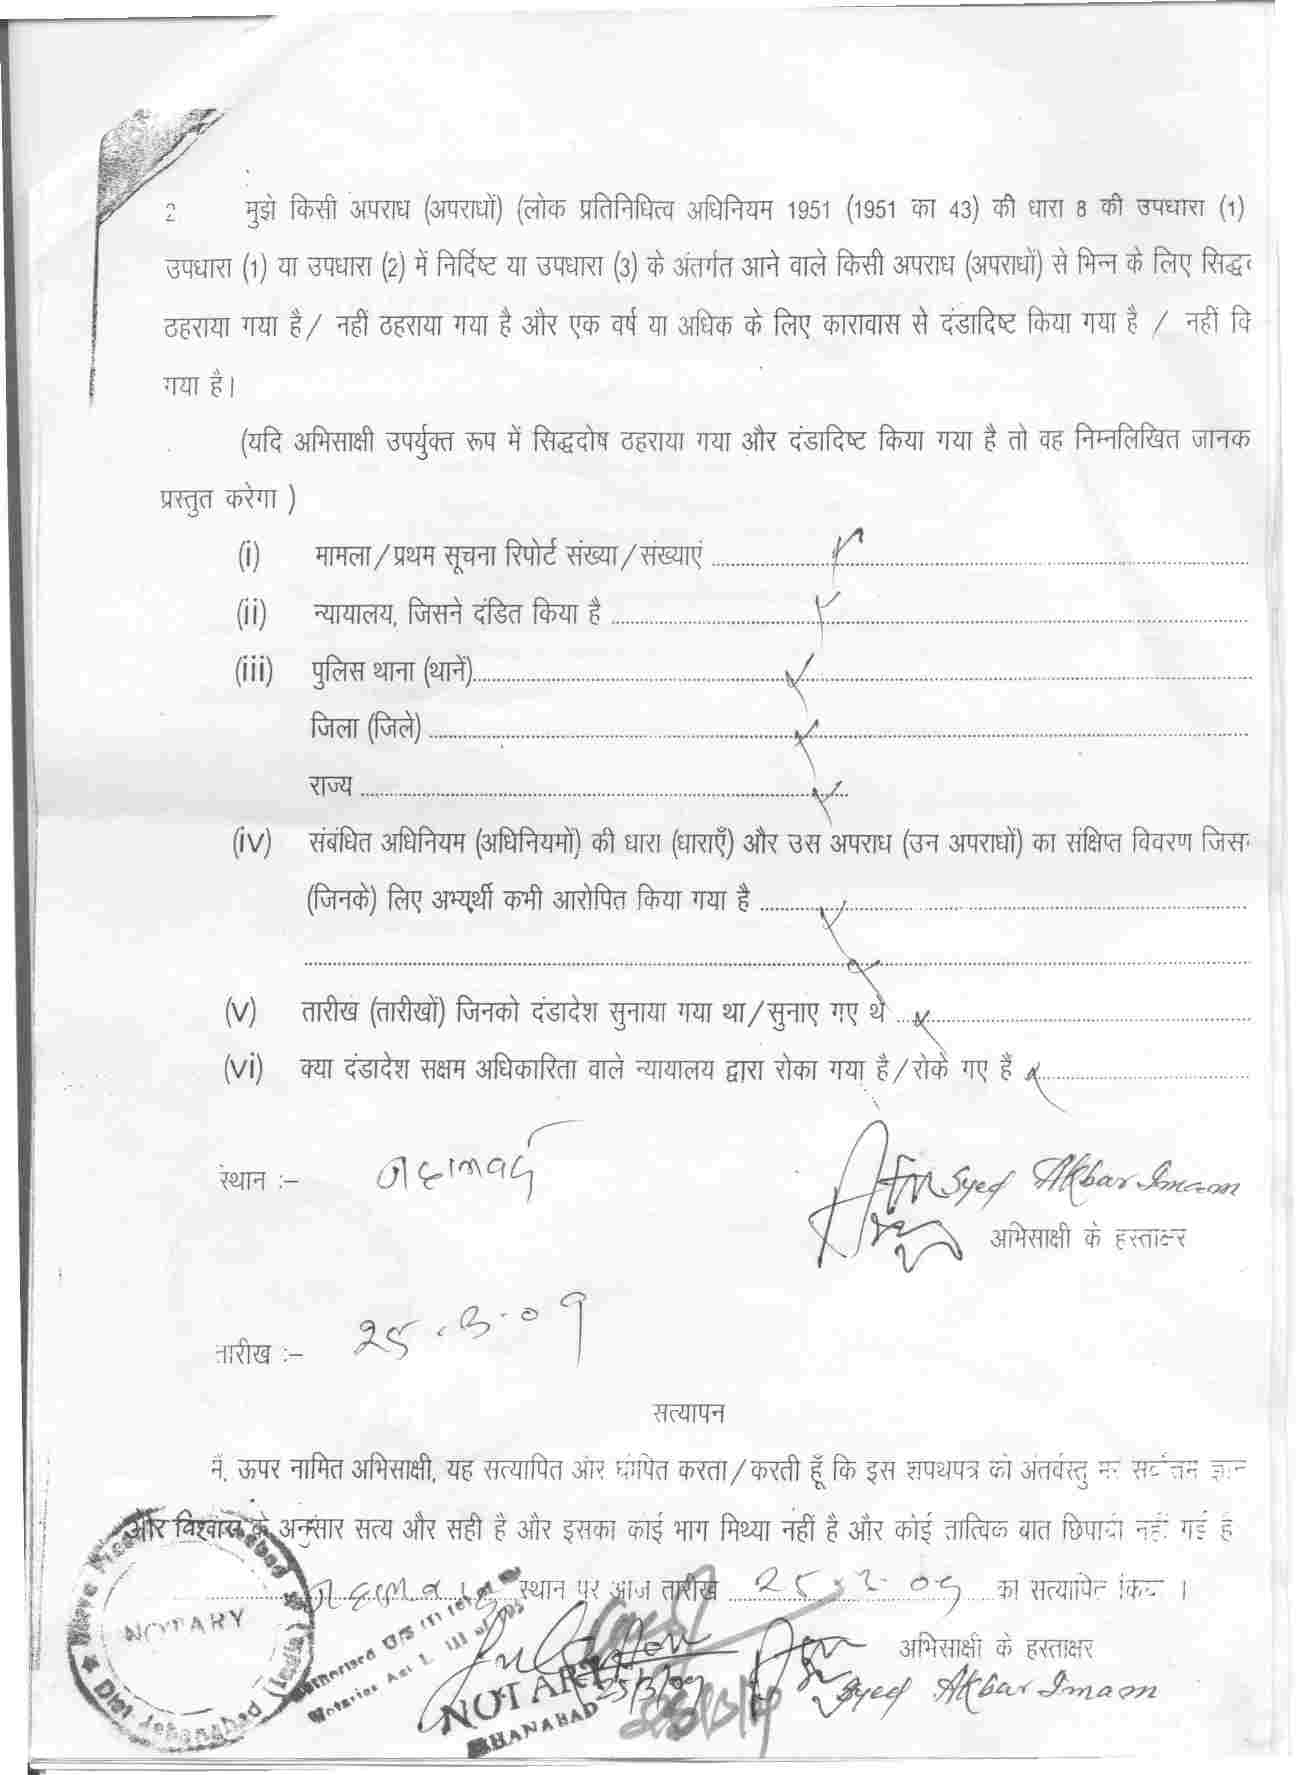 2 मुझे किसी अपराध (अपराधों) (लोक प्रतिनिधित्व अधिनियम 1951 (1951 का 43) की धारा 8 की उपधारा (1)
उपधारा (1) या उपधारा (2) में निर्दिष्ट या उपधारा (3) के अंतर्गत आने वाले किसी अपराध (अपराधों) से भिन्न के लिए सिद्धद
ठहराया गया है / नहीं ठहराया गया है और एक वर्ष या अधिक के लिए कारावास से दंडादिष्ट किया गया है / नहीं कि
गया है।
(यदि अभिसाक्षी उपर्युक्त रूप में सिद्धदोष ठहराया गया और दंडादिष्ट किया गया है तो वह निम्नलिखित जानक
प्रस्तुत करेगा )
(i) मामला/प्रथम सूचना रिपोर्ट संख्या/संख्याएं
(ii) न्यायालय, जिसने दंडित किया है
(iii) पुलिस थाना (थानें)
जिला (जिले)
राज्य
(iv) संबंधित अधिनियम (अधिनियमों) की धारा (धाराएँ) और उस अपराध (उन अपराधों) का संक्षिप्त विवरण जिस
(जिनके) लिए अभ्यर्थी कभी आरोपित किया गया है
(v) तारीख (तारीखों) जिनको दंडादेश सुनाया गया था/सुनाए गए थे
(vi) क्या दंडादेश सक्षम अधिकारिता वाले न्यायालय द्वारा रोका गया है/रोके गए हैं
स्थान :– जहानाबाद
Syed Akbar Imam
अभिसाक्षी के हस्ताक्षर
तारीख :– 25-3-09
सत्यापन
मैं, ऊपर नामित अभिसाक्षी, यह सत्यापित और घोषित करता/करती हूँ कि इस शपथपत्र की अंतर्वस्तु मेरे सर्वोत्तम ज्ञान
और विश्वास के अनुसार सत्य और सही है और इसका कोई भाग मिथ्या नहीं है और कोई तात्विक बात छिपायी नहीं गई है
जहानाबाद स्थान पर आज तारीख 25-3-09 को सत्यापित किया ।
NOTARY
Dist Jehanabad
Authorised U/S
Notaries Act
NOTARY
25/3/09
अभिसाक्षी के हस्ताक्षर
Syed Akbar Imam